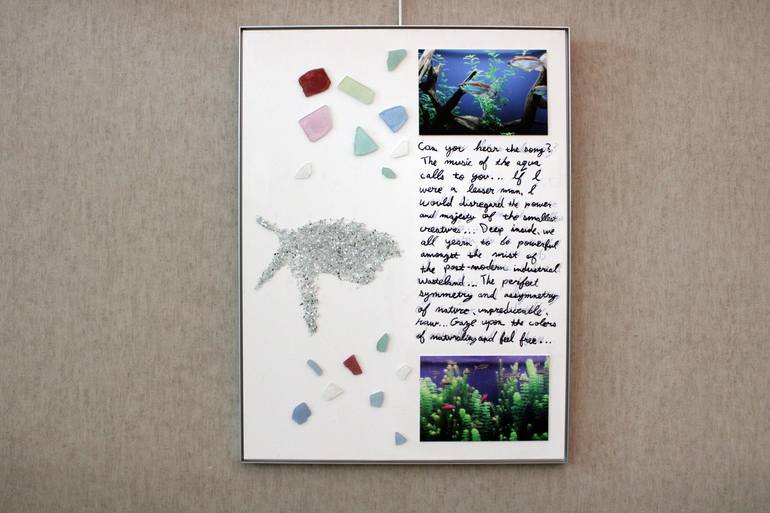 Can you hear the song?
The music of the aqua
calls to you... If I
were a lesser man, I
would disregard the power
and majesty of the smallest
creatures... Deep inside, we
all yearn to be powerful
amongst the mist of
the post-modern industrial
wasteland... The perfect
symmetry and assymmetry
of nature, unpredictable,
raw... Gaze upon the colors
of naturality and feel free...